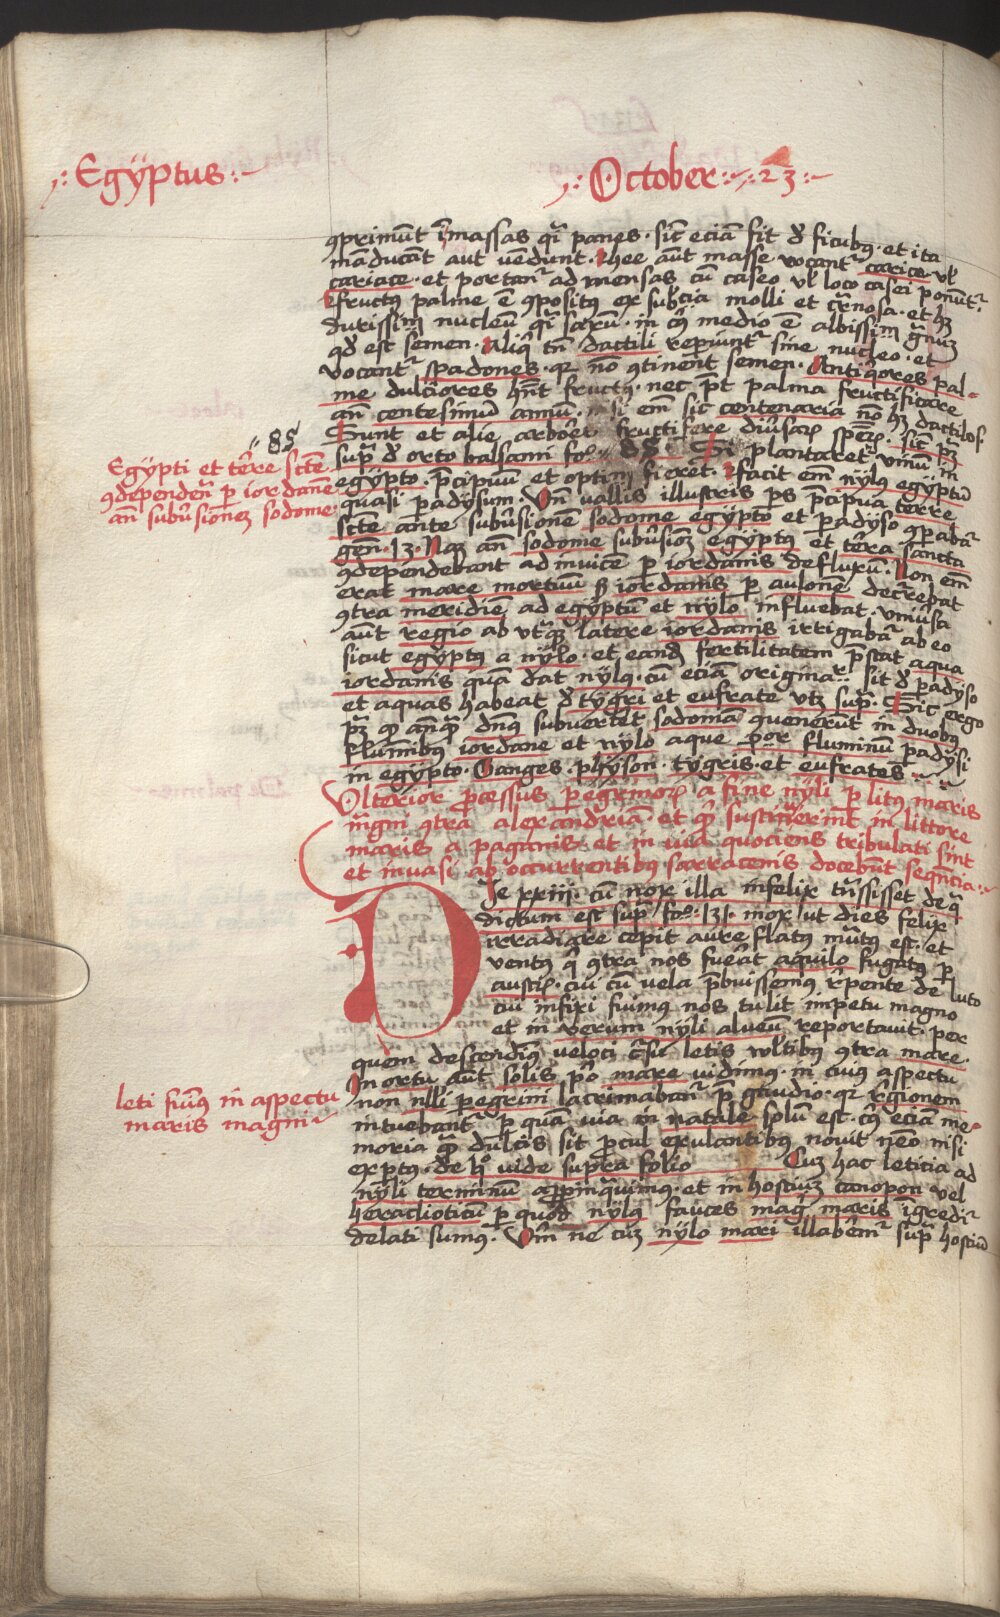 ·: Egÿptus :·
·: October :· 23 :·
ꝯprimūt ī massas q̄i panes · sic eciā fit đ ficubꝯ · et ita
māducāt aut vēdunt · hee aūt masse vocantʳ carice vł
cariace · et portanʳ ad mensas cū caseo vł loco casei ponūtʳ
fructꝯ palme ē ꝯpositꝯ ex sub̄cia molli et c̄rnosa · et hꝫ
durissim̄ nucleū q̄i saxū · in cꝰ medio ē albissim̄ g̃nuꝫ
qđ est semen · Aliq̄ tn̄ dactili repiuntʳ sine nucleo · et
vocantʳ spadones · qꝛ nō ꝯtinent semen · Antiq̄ores pal=
me dulciores hn̄t fructꝯ · nec p̄t palma fructificare
an̄ centesimū annū · nisi em̄ sic centenaria nō hꝫ dactilos
Sunt et alie arbores fructifere diūsaꝝ spēꝝ · sic pꝫ
sup̄ đ orto balsami fo · 85 · Si plantaretʳ vinū in
egÿpto · p̄cipuū et optim̄ fieret · facit em̄ nÿlꝯ egÿptū
quasi padÿsum · Vn̄ vallis illustris ps p̄cipua terre
sctē ante subūsionē sodome egÿpto et padÿso ꝯpabaʳ
gen̄ · 13 · Naꝫ an̄ sodome subūsionꝫ egÿptꝯ et tēra sancta
ꝯdependebant ad invicē ꝑ iordanis defluxū · Non em̄
erat mare mortuū sꝫ iordanis ꝑ aulonē decurrebat
ꝯtra meridiē ad egÿptū et nÿlo influebat · vniūsa
aūt regio ab vtqꝫ latere iordanis irrigabaʳ ab eo
sicut egÿptꝯ a nÿlo · et eanđ fertilitatem p̄stat aqua
iordanis quā dat nÿlꝯ · cū eciā originaʳ sit đ padÿso
et aquas habeat đ tÿgri et eufrate vtꝫ sup̄ · Sic ergo
pꝫ qꝫ anq̄ꝫ dn̄s subvertēt sodomā ꝯuenerūt in duobꝯ
fluminibꝯ iordane et nÿlo aque ·por· fluminū padÿsi
in egÿpto · Ganges · phÿson · tÿgris · et eufrates ·
Vlterior p̄cessus peregrinoꝝ a fine nÿli ꝑ litꝯ maris
mḡni ꝯtra alexandriā · et q̄ sustinuerint in littore
maris a paganis · et in via quociens tribulati sint
et invasi ab occurrentibꝯ sarracenis docebūt seqn̄cia :·
Die xxiii · cū nox illa infelix trn̄sisset de q̄
dictum est sup̄ fo · 131 · mox ut dies felix
irradiare cepit aure flatꝯ mutꝯ est · et
ventꝯ q̄ ꝯtra nos fuerat aquilo fugatꝯ ꝑ
austꝝ · cui cū vela p̄buissemꝯ repente de luto
cui infixi fuimꝯ nos tulit impetu magno
et in verum nÿli alveū reportavit · per
quem descendimꝯ veloci c̄su letis vultibꝯ ꝯtra mare ·
In ortu aūt solis p̄o mare vidimꝯ · in cuiꝯ aspectu
non nlli peregrini lacrimabanʳ p̄ gaudio · qꝛ regionem
intuebant p quam via in natale solū est · cꝰ eciā me=
moria q̄ dulcis sit procul exulantibꝯ novit nēo nisi
exptꝯ · de hͦ vide supra folio Cuꝫ hac leticia ad
nÿli terminū appinquimꝯ · et in hostiuꝫ canopon vel
heraclioticū p quod nÿlꝯ fauces mag̃ maris īgrediʳ
delati sumꝯ · Vn̄ ne cuꝫ nÿlo mari illaberemʳ sup̄ hostiū
·: 85
Egÿpti et terre sctē
ꝯdependen̄ ꝑ iordanē
an̄ subūsionꝫ sodome ·
leti fuimꝯ in aspectu
maris magni